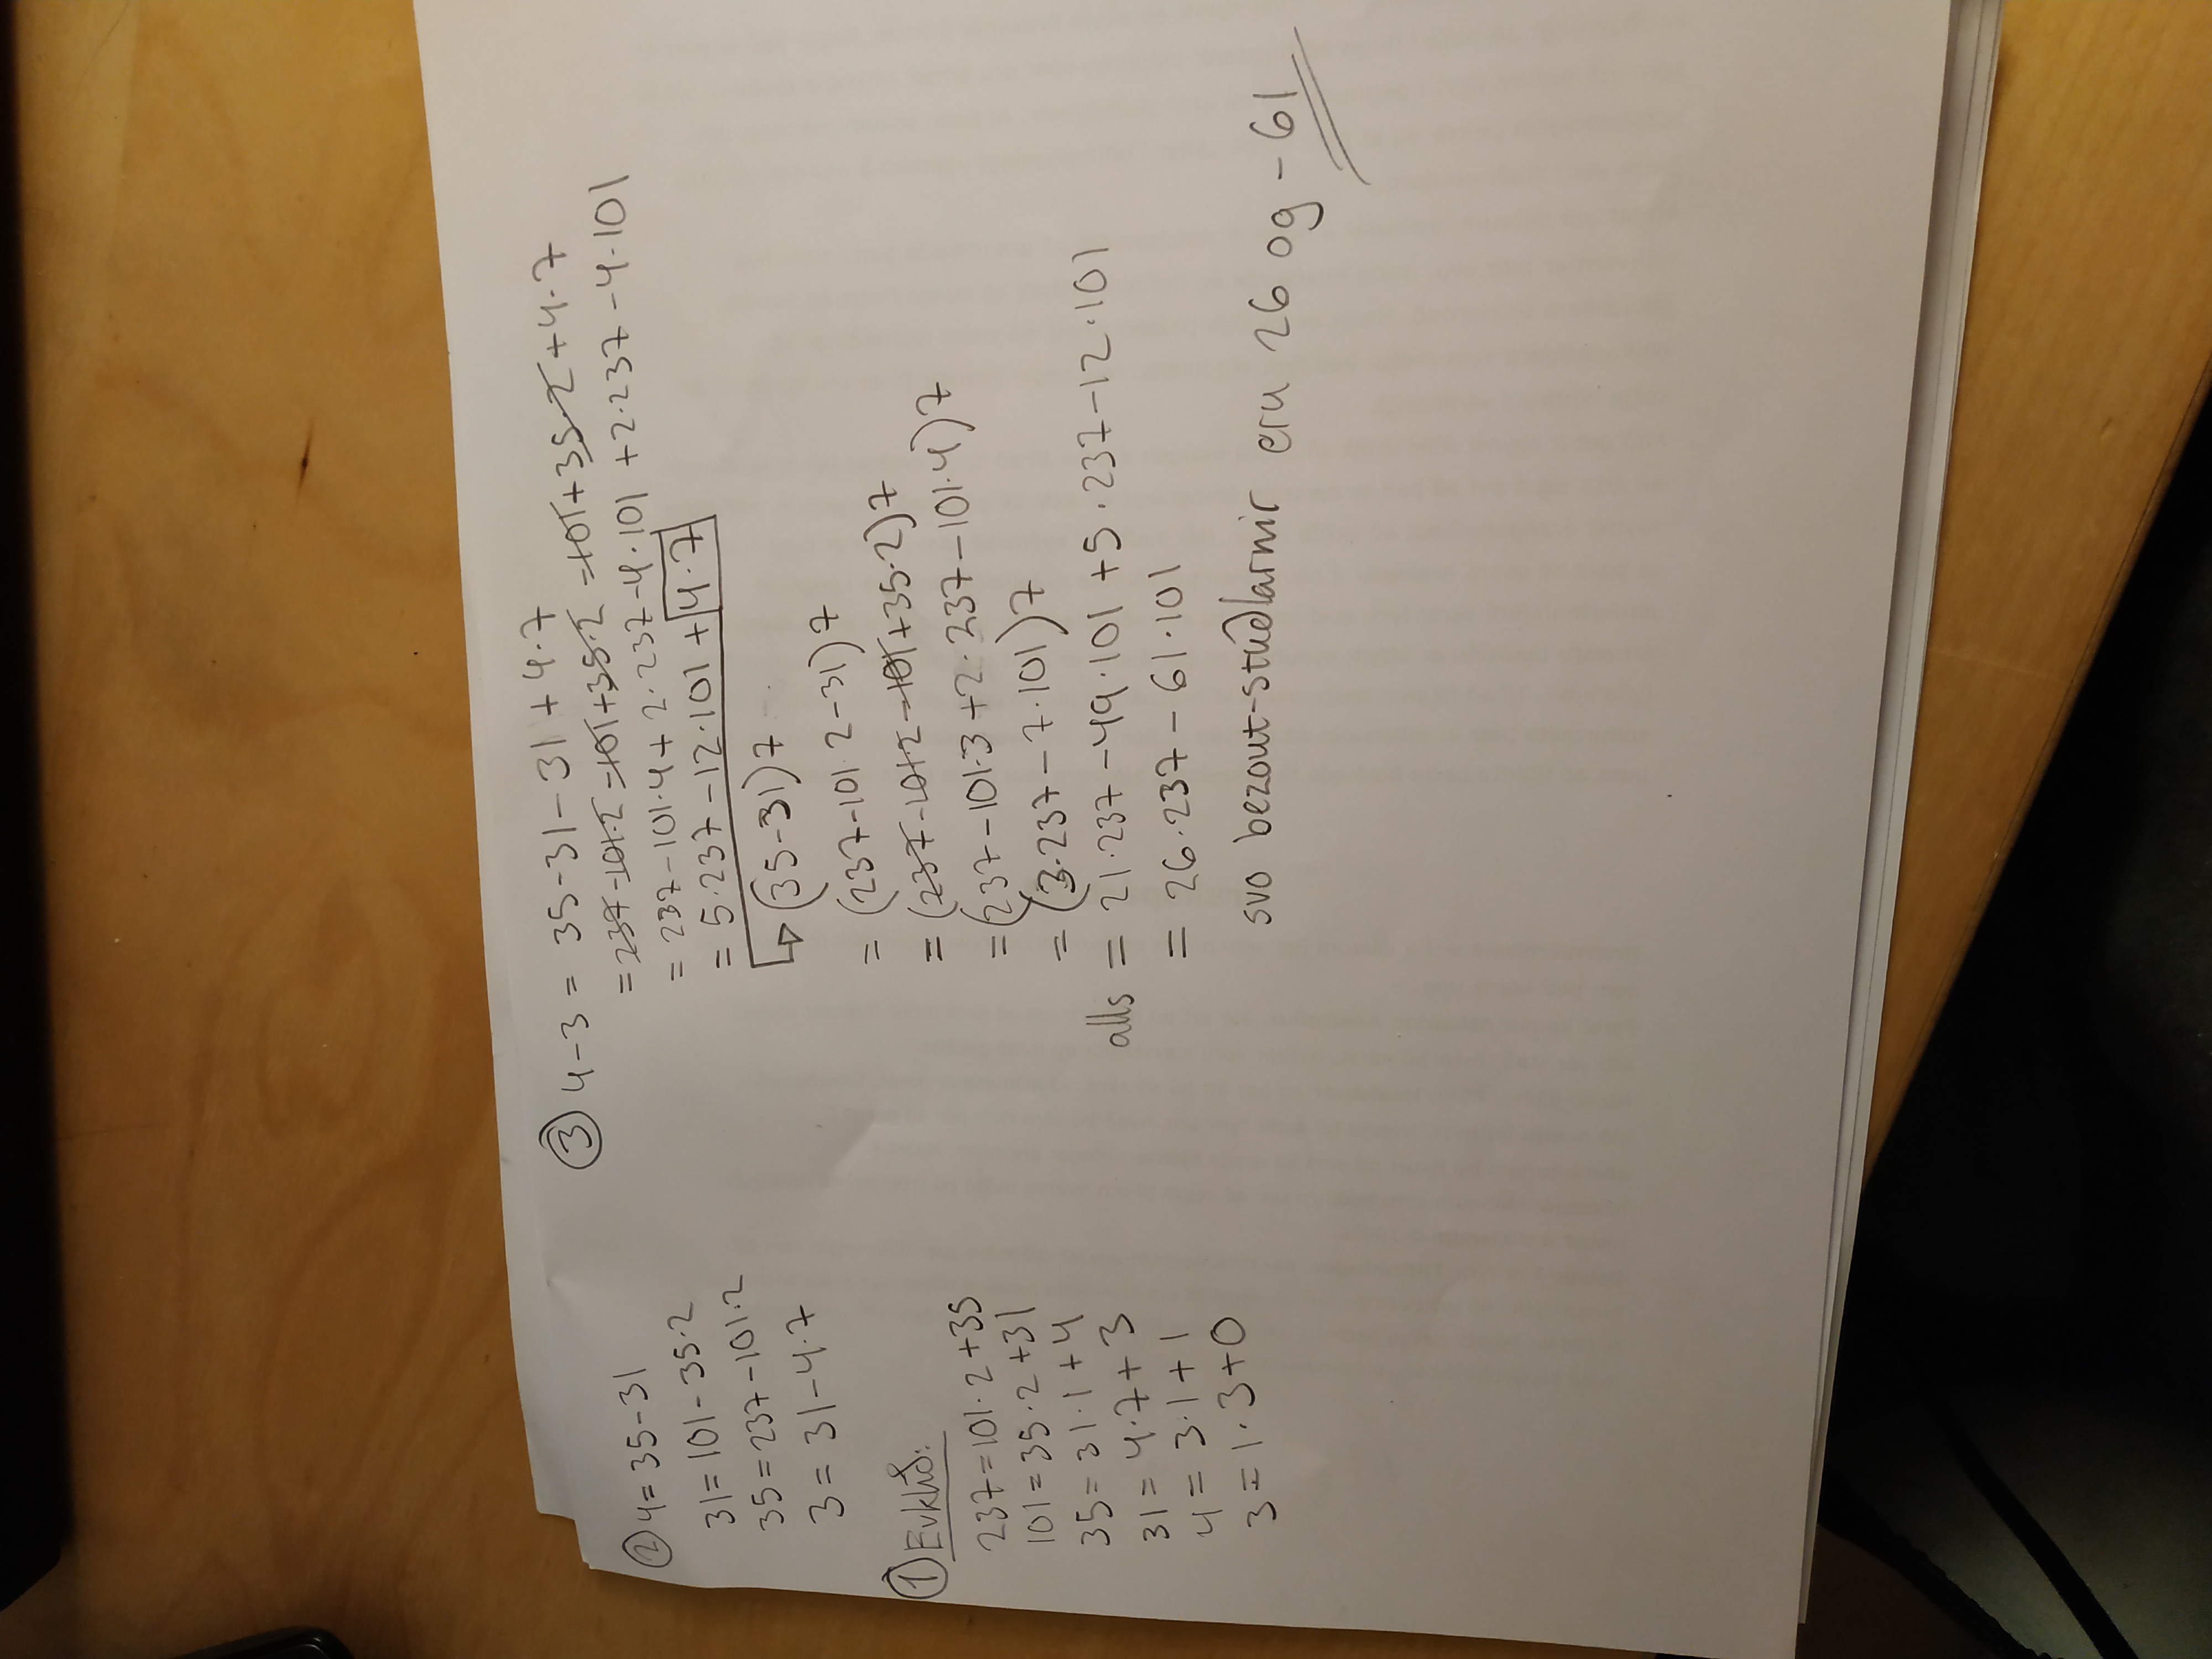 ② 4 = 35 - 31
31 = 101 - 35·2
35 = 237 - 101·2
3 = 31 - 4·7
① Evklíð:
237 = 101·2 + 35
101 = 35·2 + 31
35 = 31·1 + 4
31 = 4·7 + 3
4 = 3·1 + 1
3 = 1·3 + 0
③ 4 - 3 = 35 - 31 - 31 + 4·7
= 237 - 101·2 - 101 + 35·2 - 101 + 35·2 + 4·7
= 237 - 101·4 + 2·237 - 4·101 + 2·237 - 4·101
= 5·237 - 12·101 + 4·7
↳ (35 - 31)7
= (237 - 101·2 - 31)7
= (237 - 101·2 - 101 + 35·2)7
= (237 - 101·3 + 2·237 - 101·4)7
= (3·237 - 7·101)7
alls = 21·237 - 49·101 + 5·237 - 12·101
= 26·237 - 61·101
svo bezout-stuðlarnir eru 26 og -61